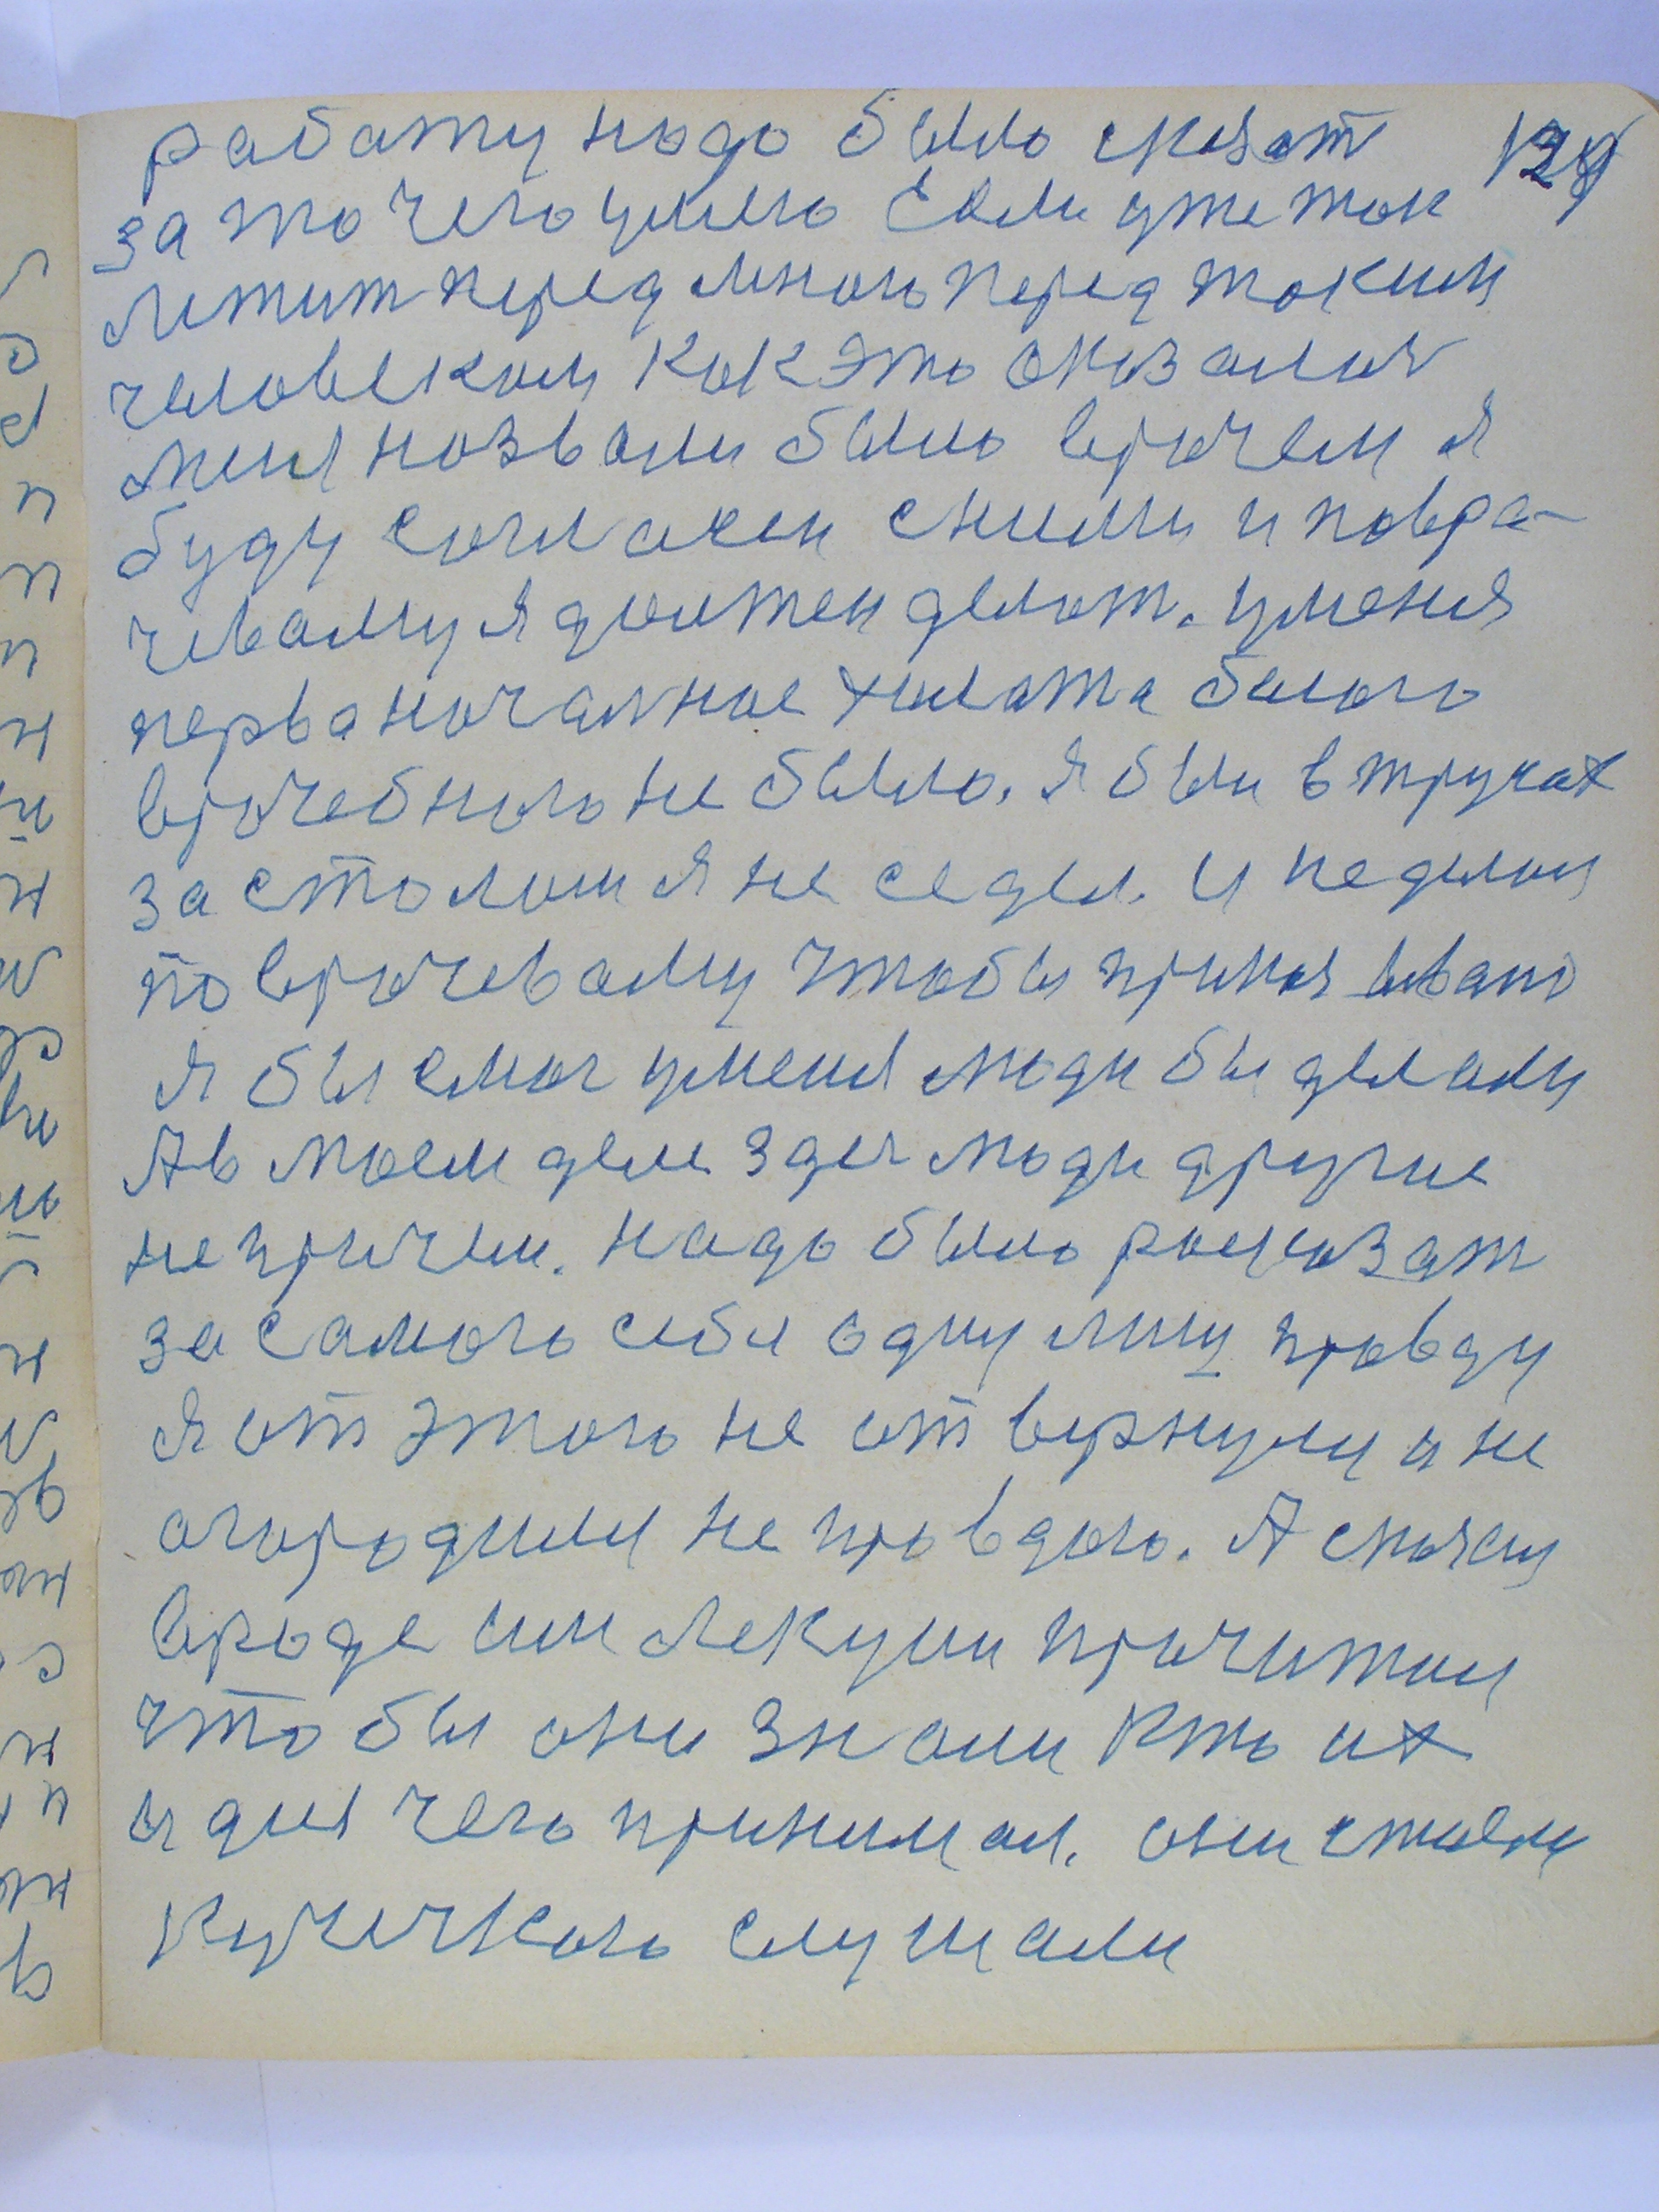 работу надо было сказат
за то чего умею Если уже так
лежит перед мною перед таким
человеком как это оказался
меня назвали было врачем я
буду согласен с ними и повра-
чевому я должен делат. у меня
первоначалное халата белого
врачебного не было. я был в трусах
за столом я не седел. и не делал
по врачевому чтобы приказывают
я бы смог у меня люди бы делали
А в моем деле здес люди другие
не причем. надо было расказат
за самого себя одну лиш правду
я от этого не отвернулся и не
огородился не правдою. А спячки
вроде им лекции прочитал
что бы они знали кто их
и для чего принимал. они стояли
кучечкою слушали